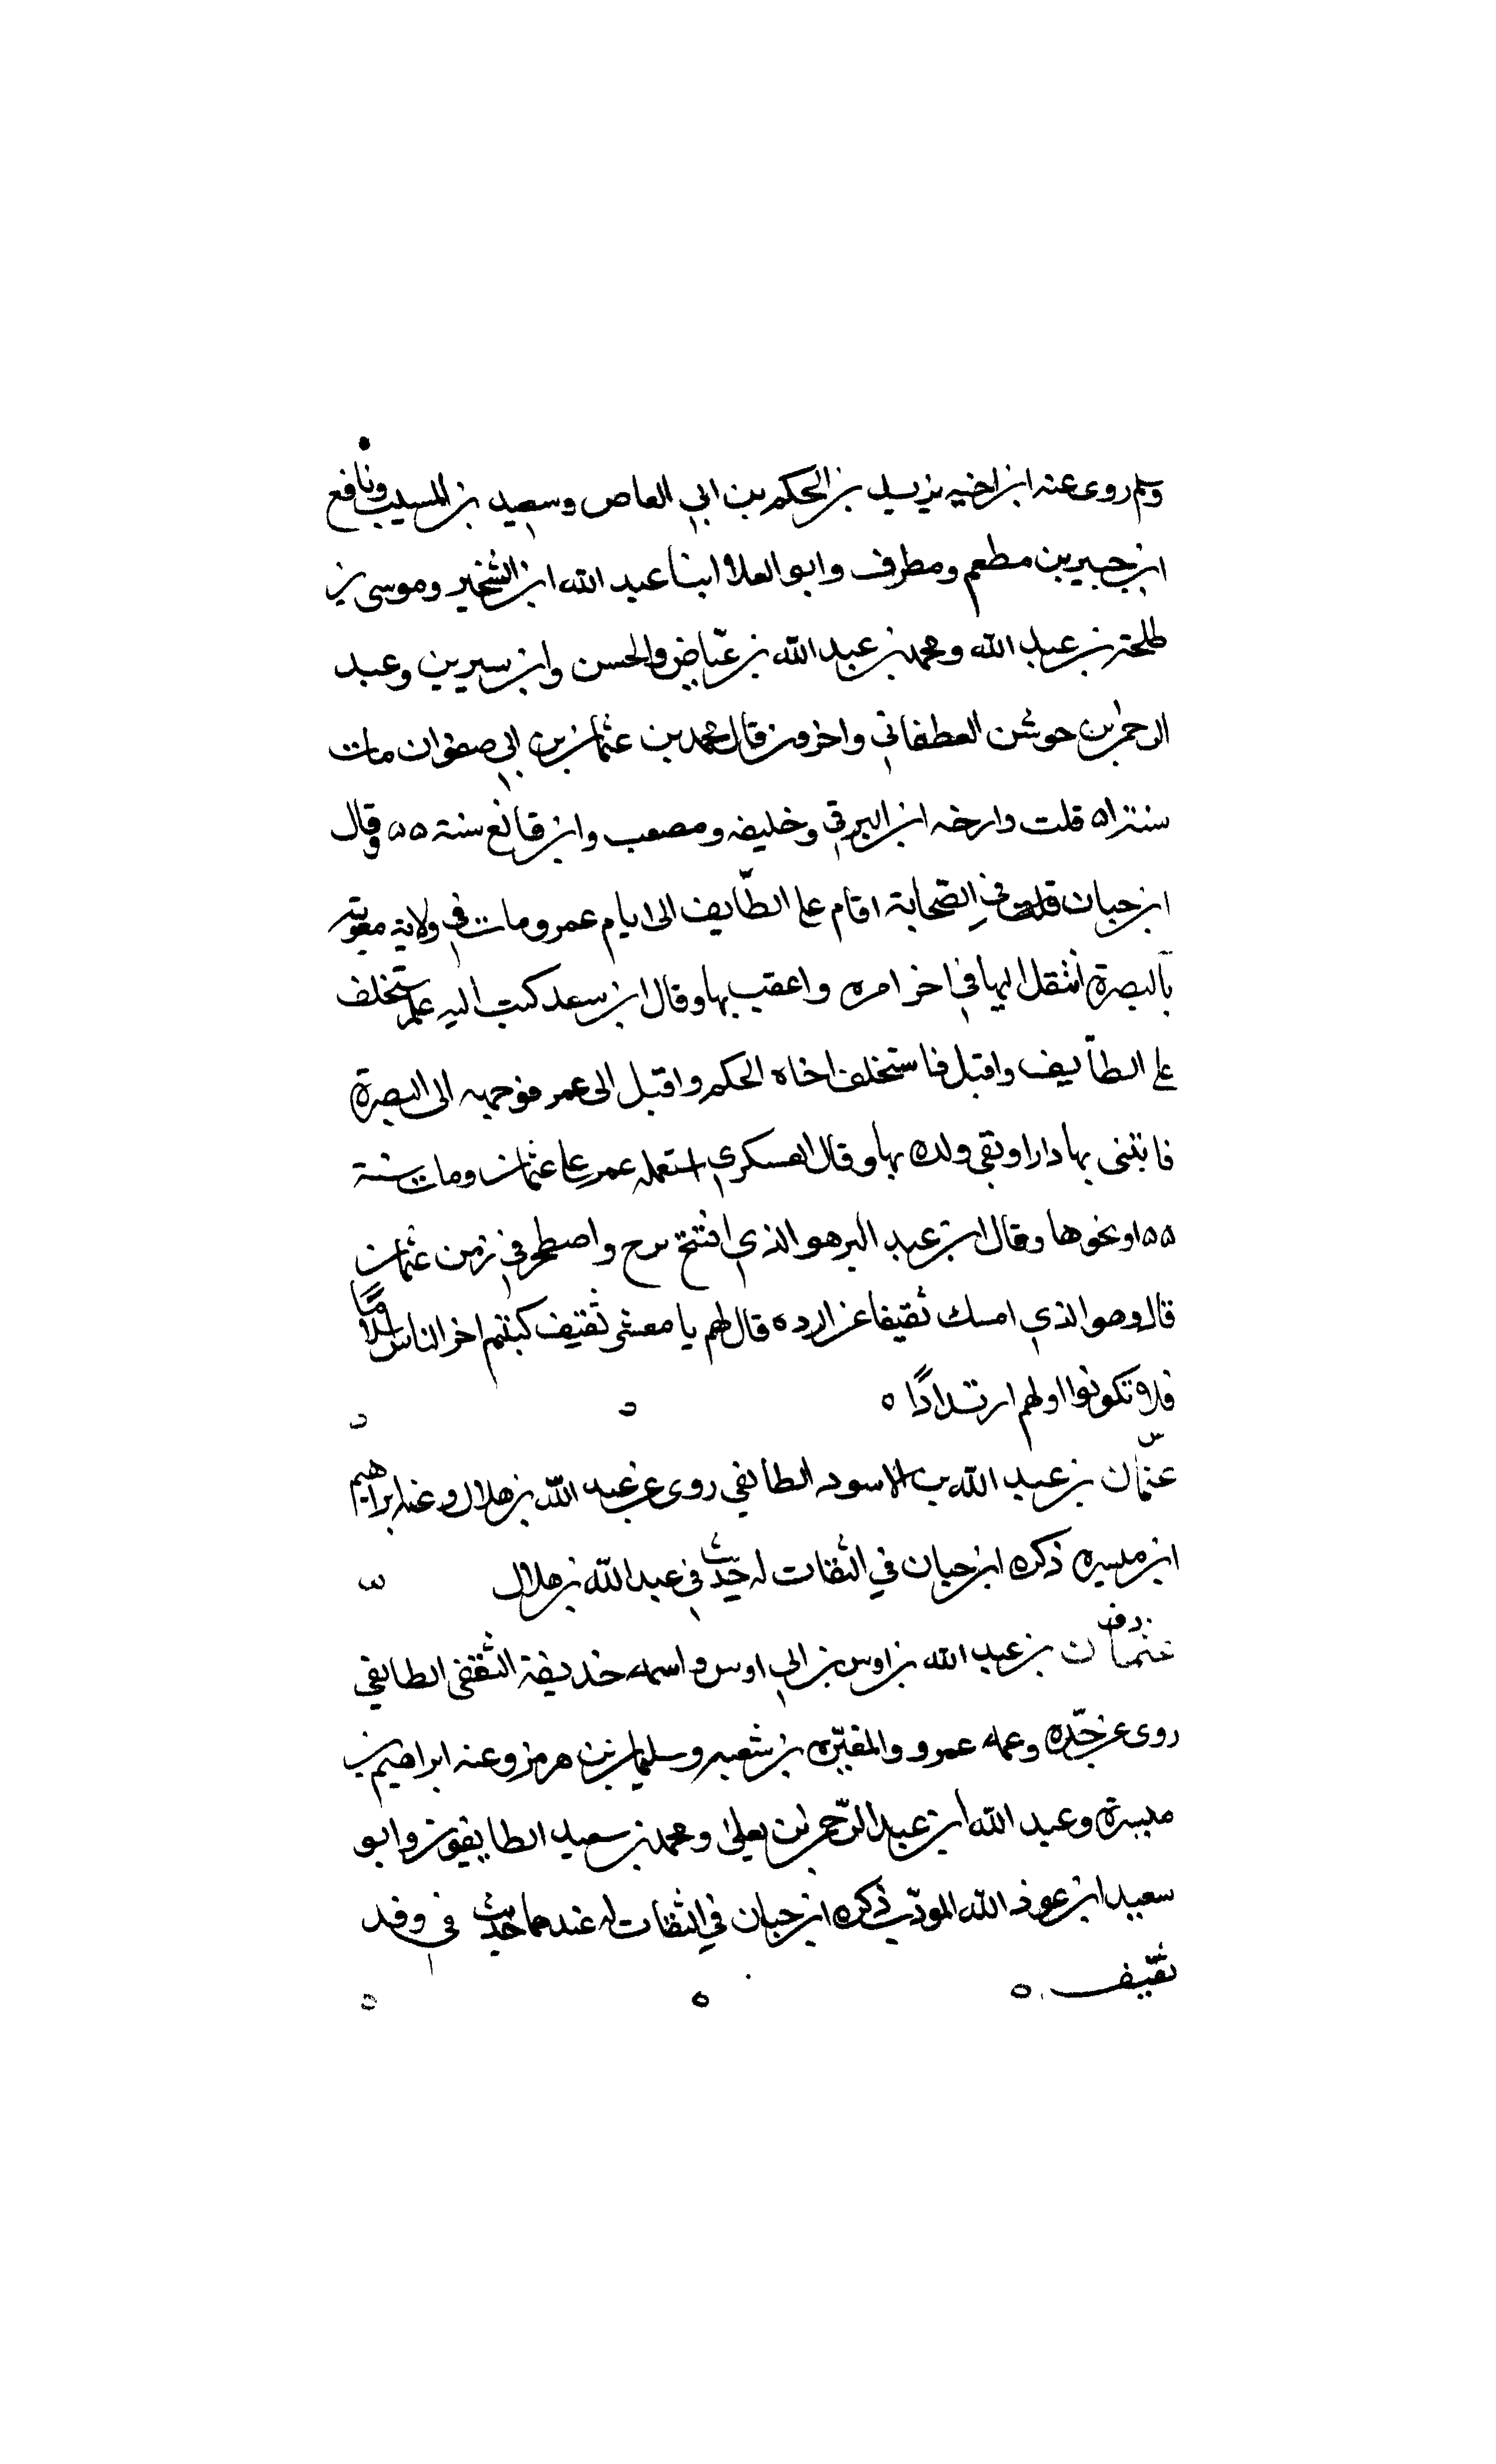 وسلم روى عنه ابن اخيه يزيد بن الحكم بن ابي العاص وسعيد بن المسيب ونافع
ابن جبير بن مطعم ومطرف وابو العلا ابنا عبد الله ابن الشخير وموسى بن
طلحة بن عبد الله ومحمد بن عبد الله بن عياض والحسن وابن سيرين وعبد
الرحمن بن جوشن الغطفاني واخرون قال محمد بن عثمان بن ابي صفوان مات
سنة ٥١ قلت وارخه ابن البرقي وخليفه ومصعب وابن قانع سنة ٥٥ وقال
ابن حبان في الصحابة اقام على الطايف الى ايام عمر ومات في ولاية معوية
بالبصرة انتقل اليها في اخر امره واعقب بها وقال ابن سعد كتب اليه عمر استخلف
على الطايف واقبل فاستخلف اخاه الحكم واقبل الى عمر فوجهه الى البصرة
فابتنى بها دارا وبقي ولده بها وقال العسكري استعمله عمر على عثمان ومات سنة
٥٥ او نحوها وقال ابن عبد البر هو الذي افتتح واصطخر في زمن عثمان
قال وهو الذي امسك ثقيفا عن الرده قال لهم يا معشر ثقيف كنتم اخر الناس اسلاما
فلا تكونوا اولهم ارتدادًا ه
عثمان بن عبد الله بن الاسود الطايفي روى عن عبد الله بن هلال وعنه ابراهيم
ابن ميسره ذكره ابن حبان في الثقات له حديث في عبد الله بن هلال
عثمان بن عبد الله بن اوس بن ابي اوس واسمه حذيفة الثقفي الطايفي
روى عن جده وعمه عمرو والمغيره بن شعبه وسليمان بن هرمز وعنه ابراهيم بن
ميسرة وعبد الله ابن عبد الرحمن بن يعلى ومحمد بن سعيد الطايفيون وابو
سعيد ابن عوذ الله المودب ذكره ابن حبان في الثقات له عندهما حديث في وفد
ثقيف ه